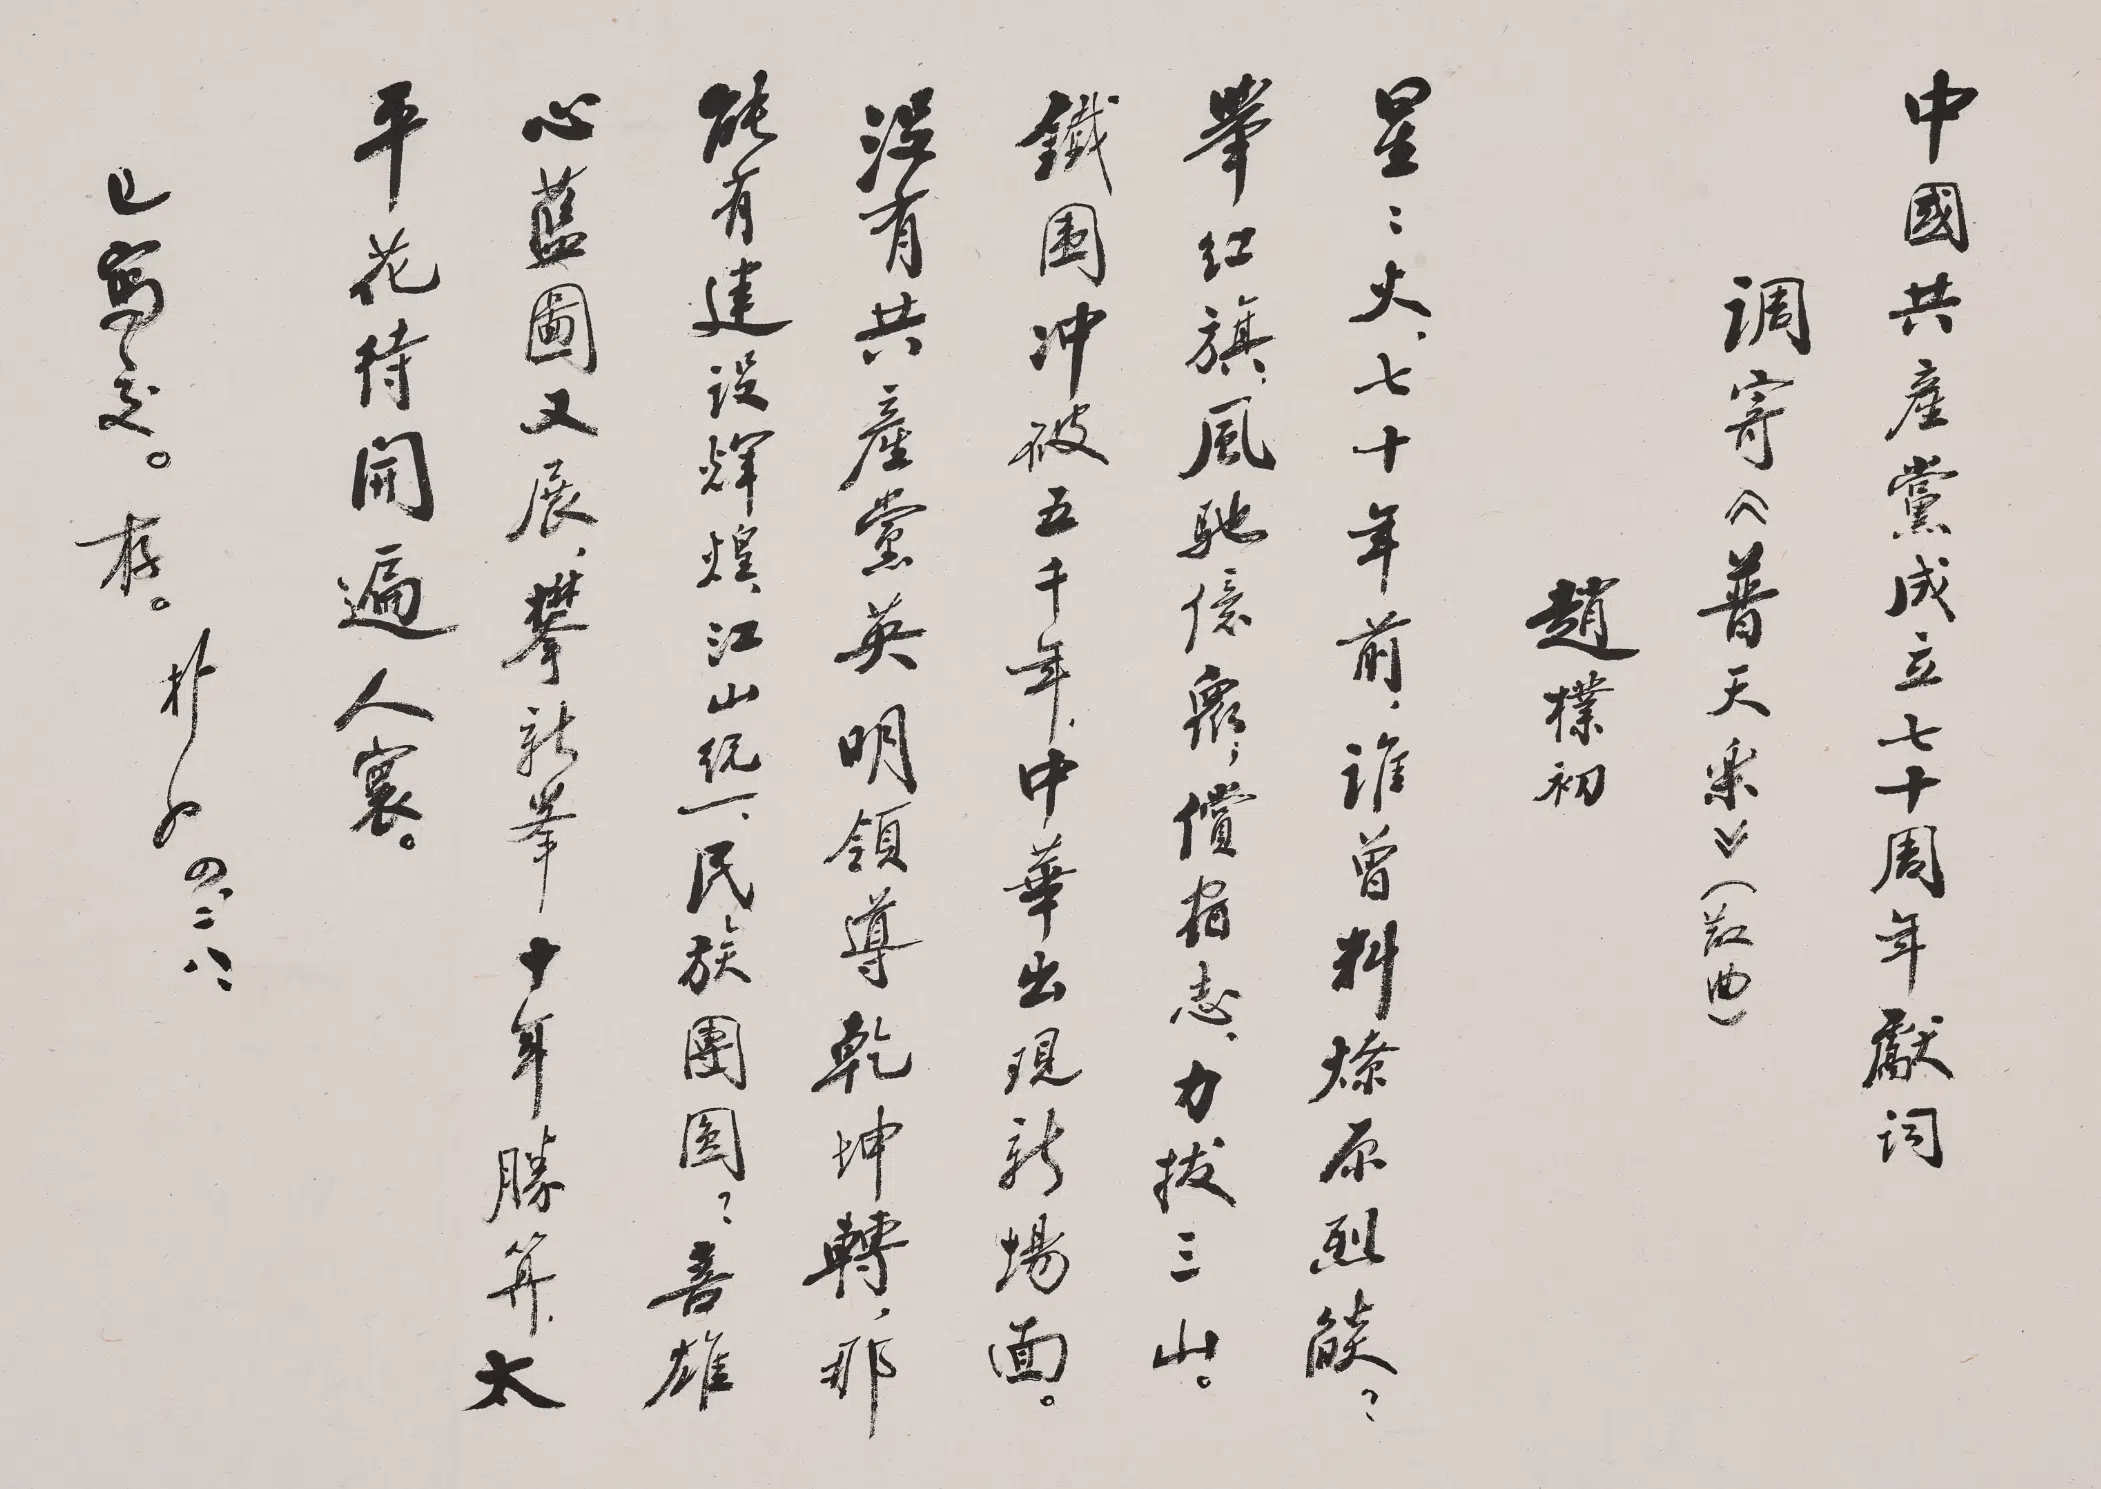 中國共產黨成立七十周年獻词
调寄《普天乐》（散曲）
趙樸初
星:火、七十年前，谁曾料燎原烈燄？
举红旗、風馳億衆，償宿志、力拔三山。
鐵围冲破五千年，中華出現新場面。
没有共產黨英明領導乾坤轉，那
能有建设輝煌、江山统一、民族團圆？喜雄
心藍圖又展，攀新峯十年勝算，太
平花待開遍人寰。
已寫交。存。
朴初 四、二八